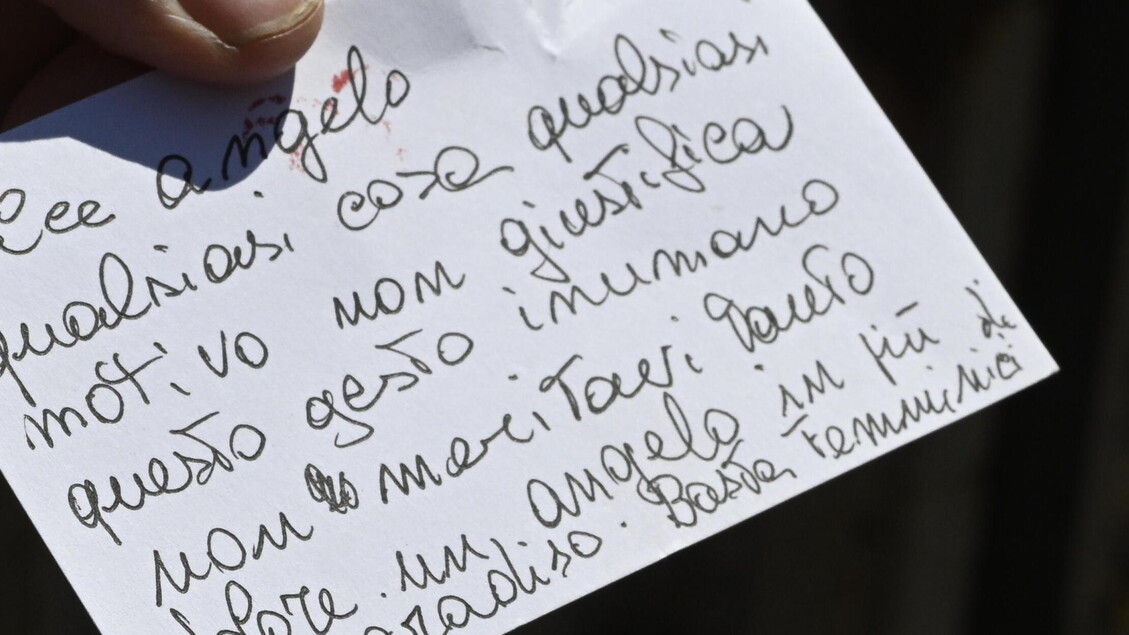 angelo
qualsiasi cosa qualsiasi
motivo non giustifica
questo gesto inumano
non meritavi tanto
dolore. un angelo in più in
paradiso. Basta femminici